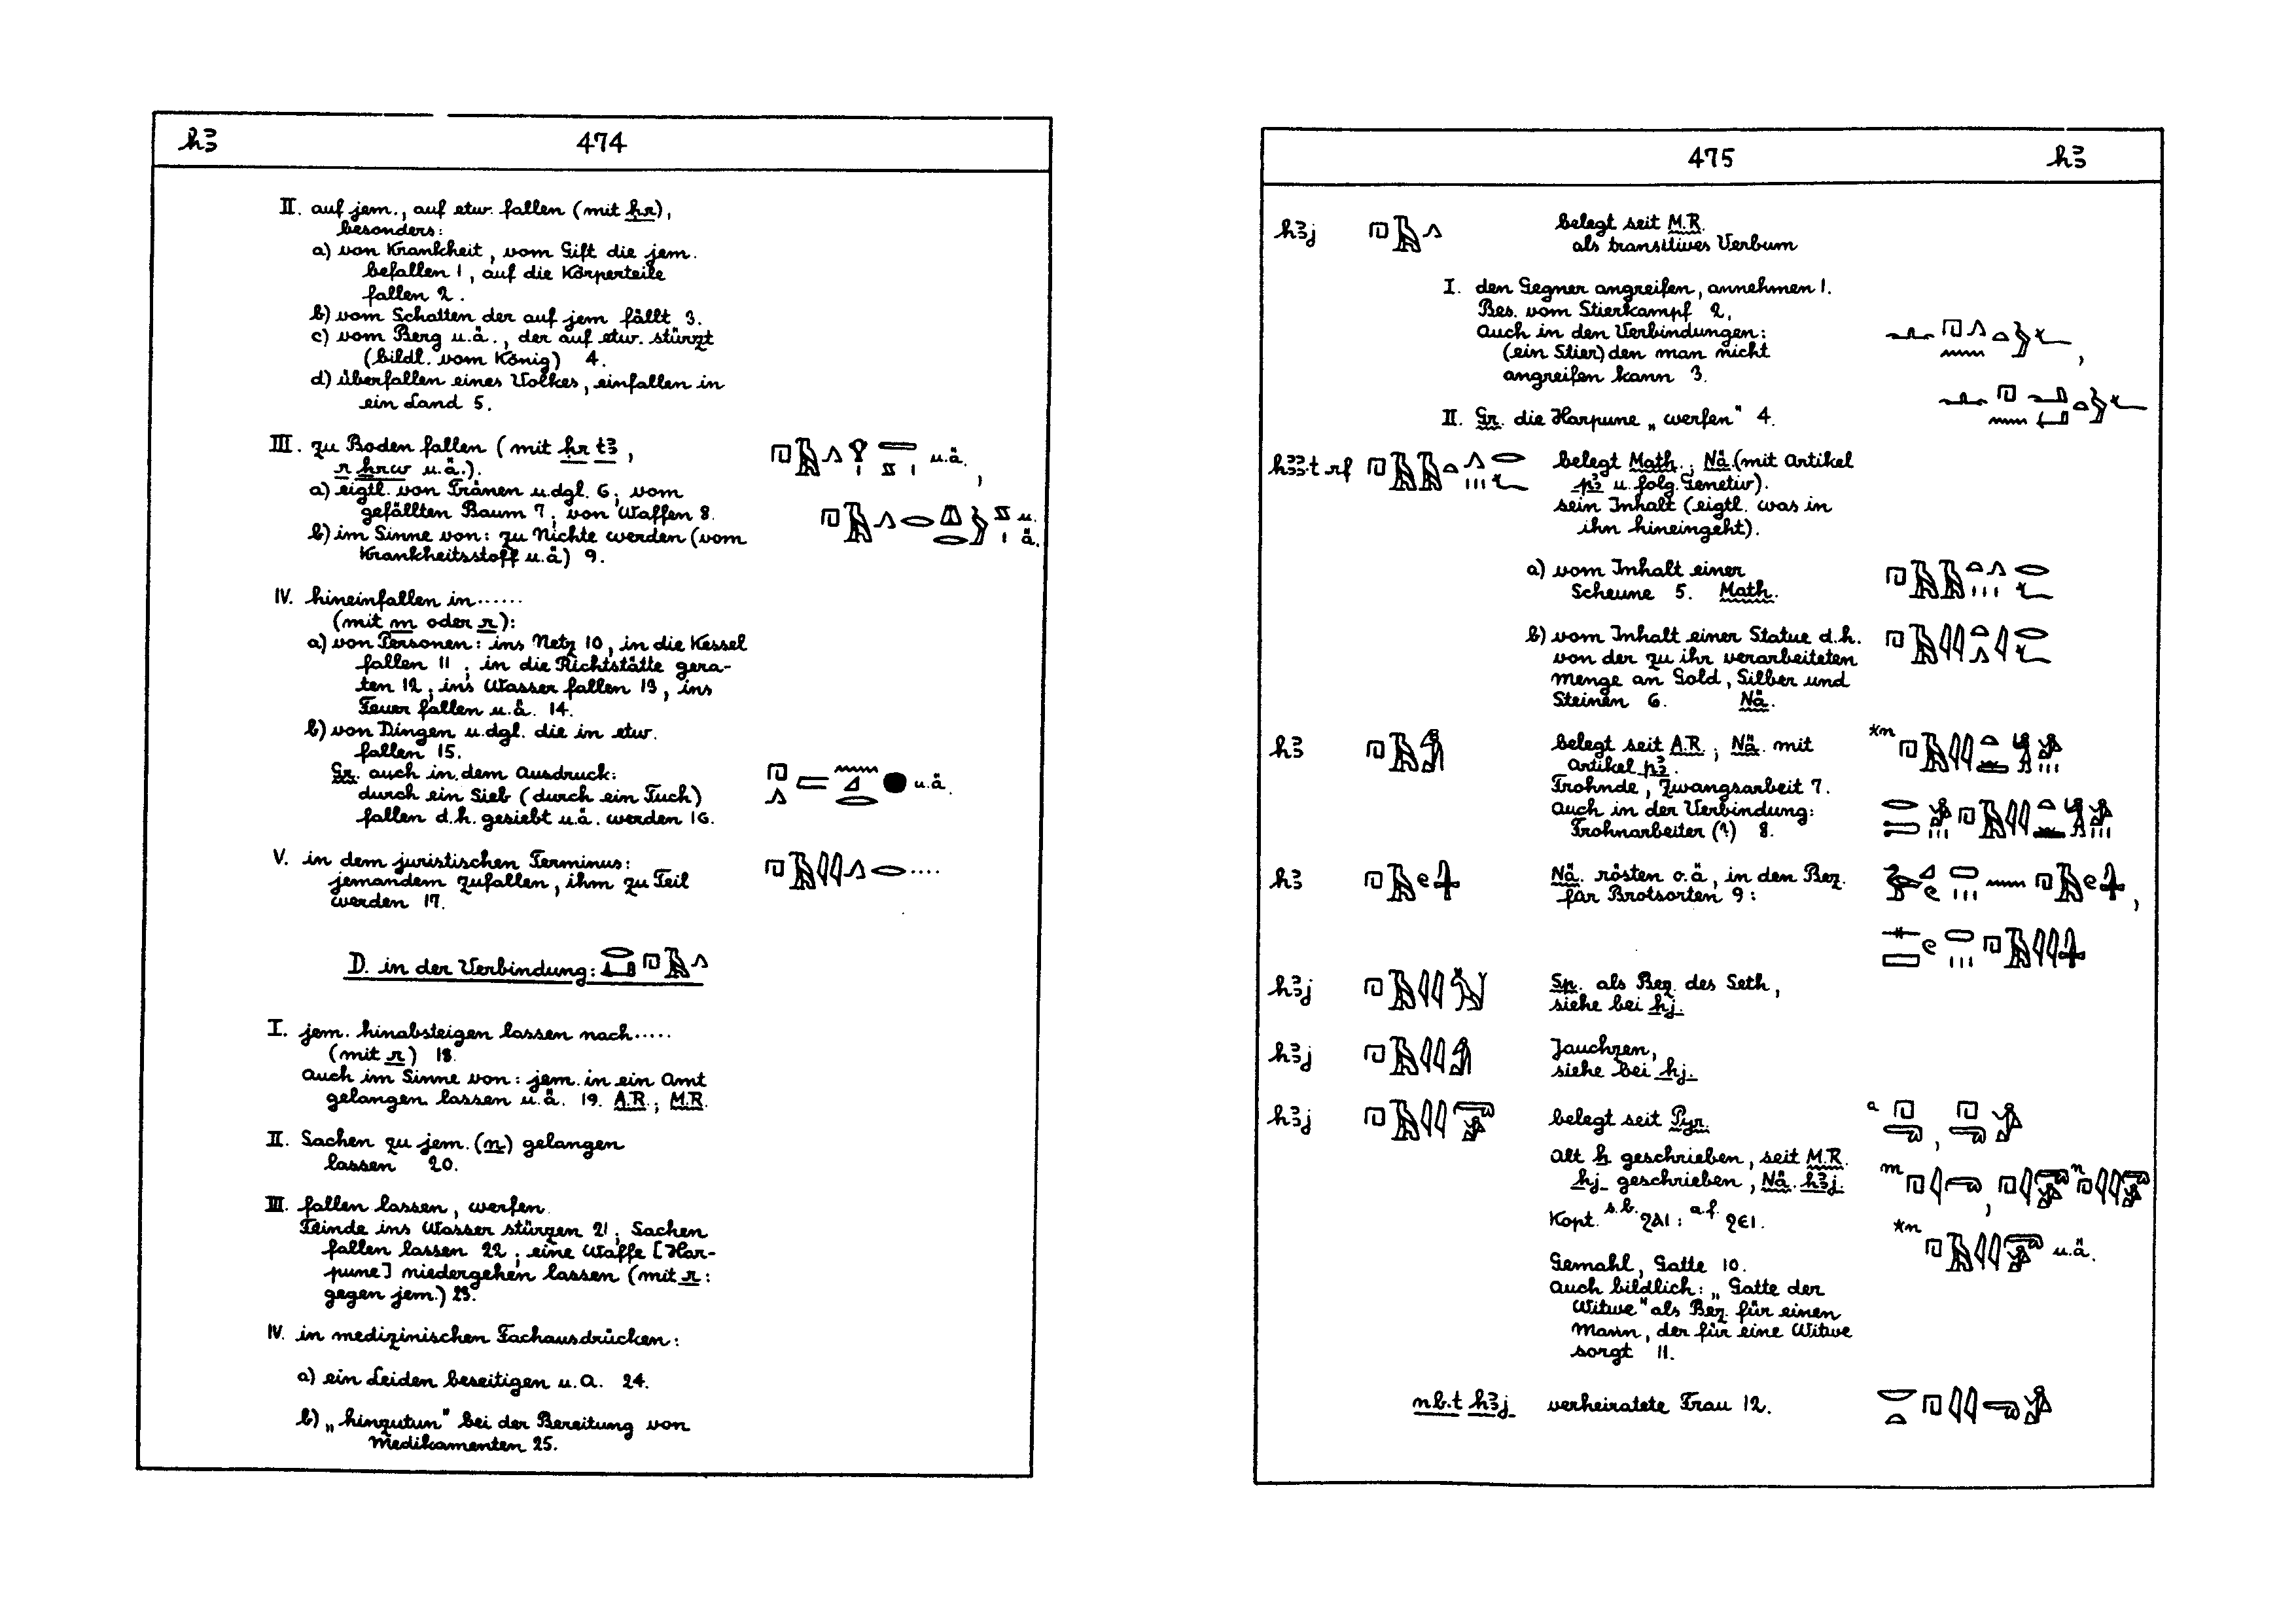 hꜣ 474
II. auf jem., auf etw. fallen (mit ḥr),
besonders:
a) von Krankheit, vom Gift die jem.
befallen 1, auf die Körperteile
fallen 2.
b) vom Schatten der auf jem fällt 3.
c) vom Berg u.ä., der auf etw. stürzt
(bildl. vom König) 4.
d) überfallen eines Volkes, einfallen in
ein Land 5.
III. zu Boden fallen (mit ḥr tꜣ, u.ä.,
r ẖrw u.ä.).
a) eigtl. von Tränen u.dgl. 6; vom
gefällten Baum 7; von Waffen 8. u.
b) im Sinne von: zu Nichte werden (vom ä.
Krankheitsstoff u.ä) 9.
IV. hineinfallen in......
(mit m oder r):
a) von Personen: ins Netz 10, in die Kessel
fallen 11; in die Richtstätte gera-
ten 12; ins Wasser fallen 13, ins
Feuer fallen u.ä. 14.
b) von Dingen u.dgl. die in etw.
fallen 15.
Gr. auch in dem Ausdruck: u.ä.
durch ein Sieb (durch ein Tuch)
fallen d.h. gesiebt u.ä. werden 16.
V. in dem juristischen Terminus: ....
jemandem zufallen, ihm zu Teil
werden 17.
D. in der Verbindung:
I. jem. hinabsteigen lassen nach.....
(mit r) 18.
Auch im Sinne von: jem. in ein Amt
gelangen lassen u.ä. 19. A.R.; M.R.
II. Sachen zu jem. (n) gelangen
lassen 20.
III. fallen lassen, werfen.
Feinde ins Wasser stürzen 21; Sachen
fallen lassen 22; eine Waffe [Har-
pune] niedergehen lassen (mit r:
gegen jem.) 23.
IV. in medizinischen Fachausdrücken:
a) ein Leiden beseitigen u.ä. 24.
b) „hinzutun" bei der Bereitung von
Medikamenten 25.
475 hꜣ
hꜣj belegt seit M.R.
als transitives Verbum
I. den Gegner angreifen, annehmen 1.
Bes. vom Stierkampf 2,
auch in den Verbindungen:
(ein Stier) den man nicht
angreifen kann 3.
II. Gr. die Harpune „werfen" 4.
hꜣꜣ·t rf belegt Math.; Nä. (mit Artikel
pꜣ u. folg. Genetiv).
sein Inhalt (eigtl. was in
ihn hineingeht).
a) vom Inhalt einer
Scheune 5. Math.
b) vom Inhalt einer Statue d.h.
von der zu ihr verarbeiteten
Menge an Gold, Silber und
Steinen 6. Nä.
hꜣ belegt seit A.R.; Nä. mit *n
Artikel pꜣ.
Frohnde, Zwangsarbeit 7.
Auch in der Verbindung:
Frohnarbeiter (?) 8.
hꜣ Nä. rösten o.ä, in den Bez.
für Brotsorten 9:
hꜣj Sp. als Bez. des Seth,
siehe bei hj.
hꜣj Jauchzen,
siehe bei hj.
hꜣj belegt seit Pyr. a
Alt h geschrieben, seit M.R.
hj geschrieben, Nä. hꜣj. m n
Kopt. s.b. ϩⲁⲓ : a.f. ϩⲉⲓ. *n u.ä.
Gemahl, Gatte 10.
Auch bildlich: „Gatte der
Witwe" als Bez. für einen
Mann, der für eine Witwe
sorgt 11.
nb.t hꜣj verheiratete Frau 12.